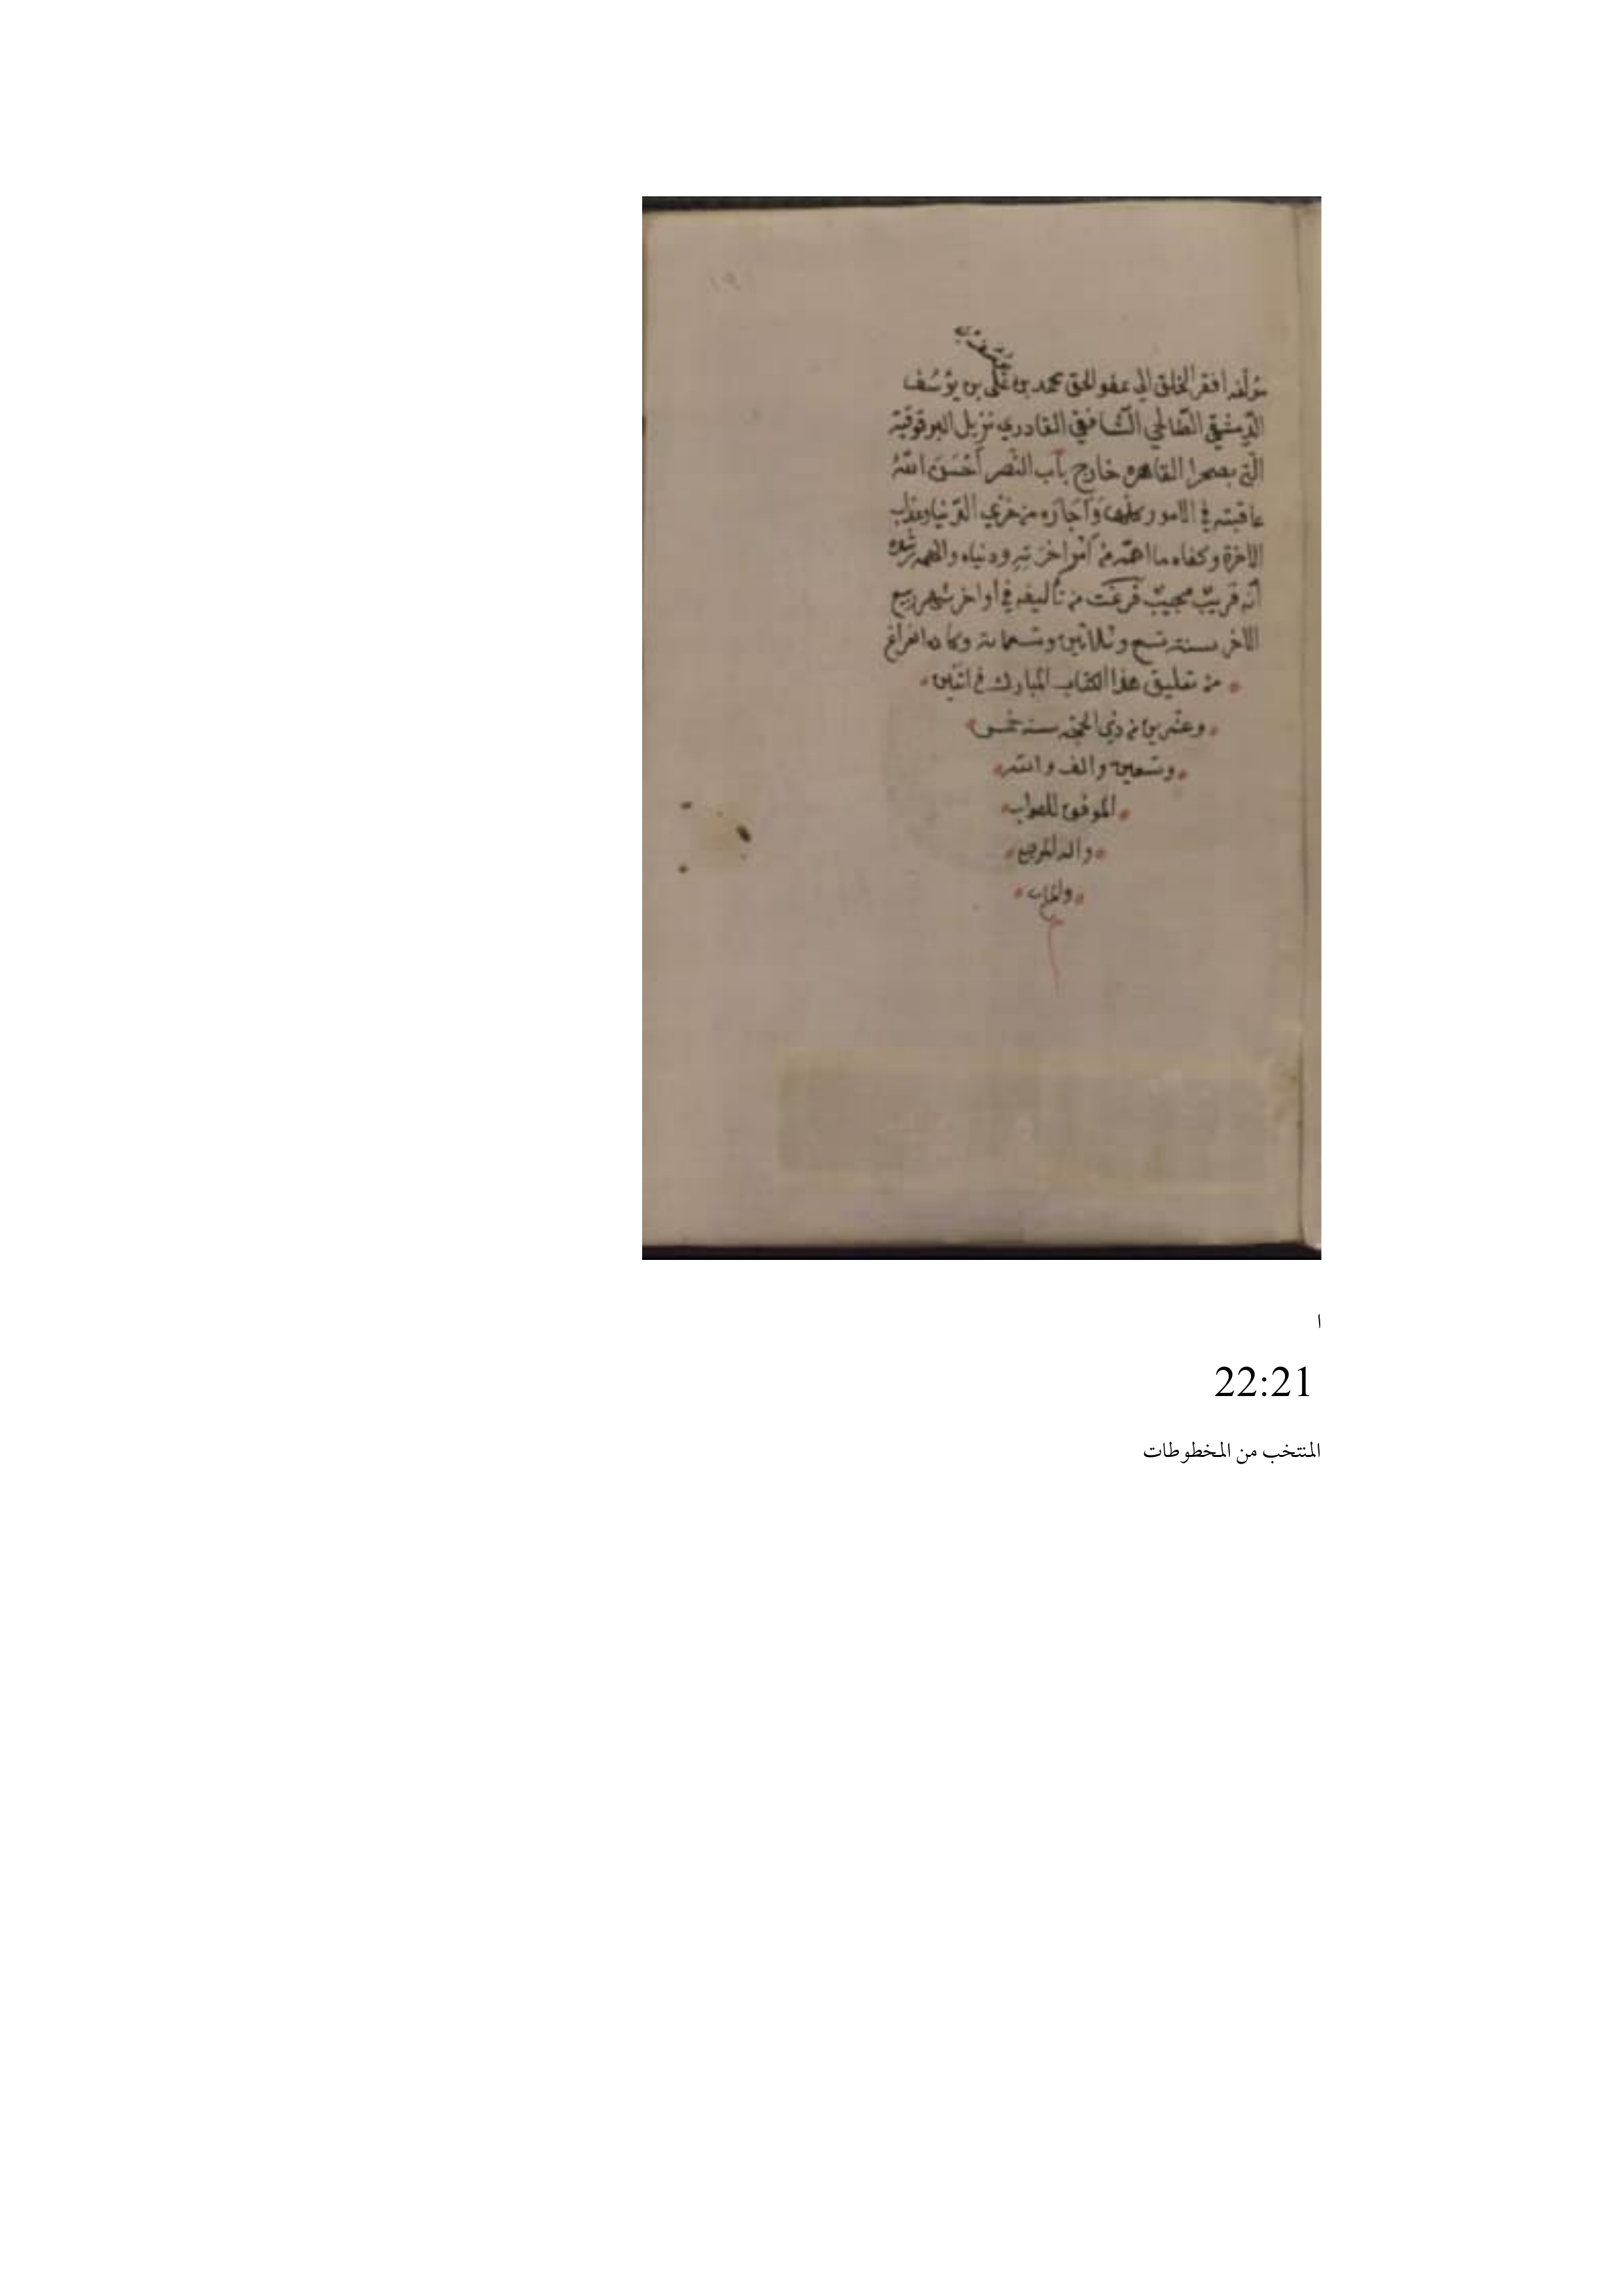 ١٩١
يوسف بن
مؤلفه افقر الخلق الي عفو الحق محمد بن علي بن يوُسُف
الدِّمشقي الصَّالحي الشَّافعي القادري نزيل البرقوقية
الَّتي بصحرا القاهره خارج باب النَّصر أحْسَنَ اللهُ
عاقبته في الامور كلها وَأجَارَه من خزي الدّنيا وعذاب
الاخرة وكفاه ما اهمّه من أمر اخرَتِهِ ودنياه والهمه رشده
أنّه قريبٌ مجيبٌ فرغت من تأليفه في أواخر شهر ربيع
الاخر سنة تسع وثلاثين وتسعمائة وكان الفراغ
من تعليق هذا الكتاب المبارك في اثنين
وعشرين من ذي الحجة سنة خمس
وتسعين والف والله
الموفق للصواب
واليه المرجع
والمآب
ا
22:21
المنتخب من المخطوطات